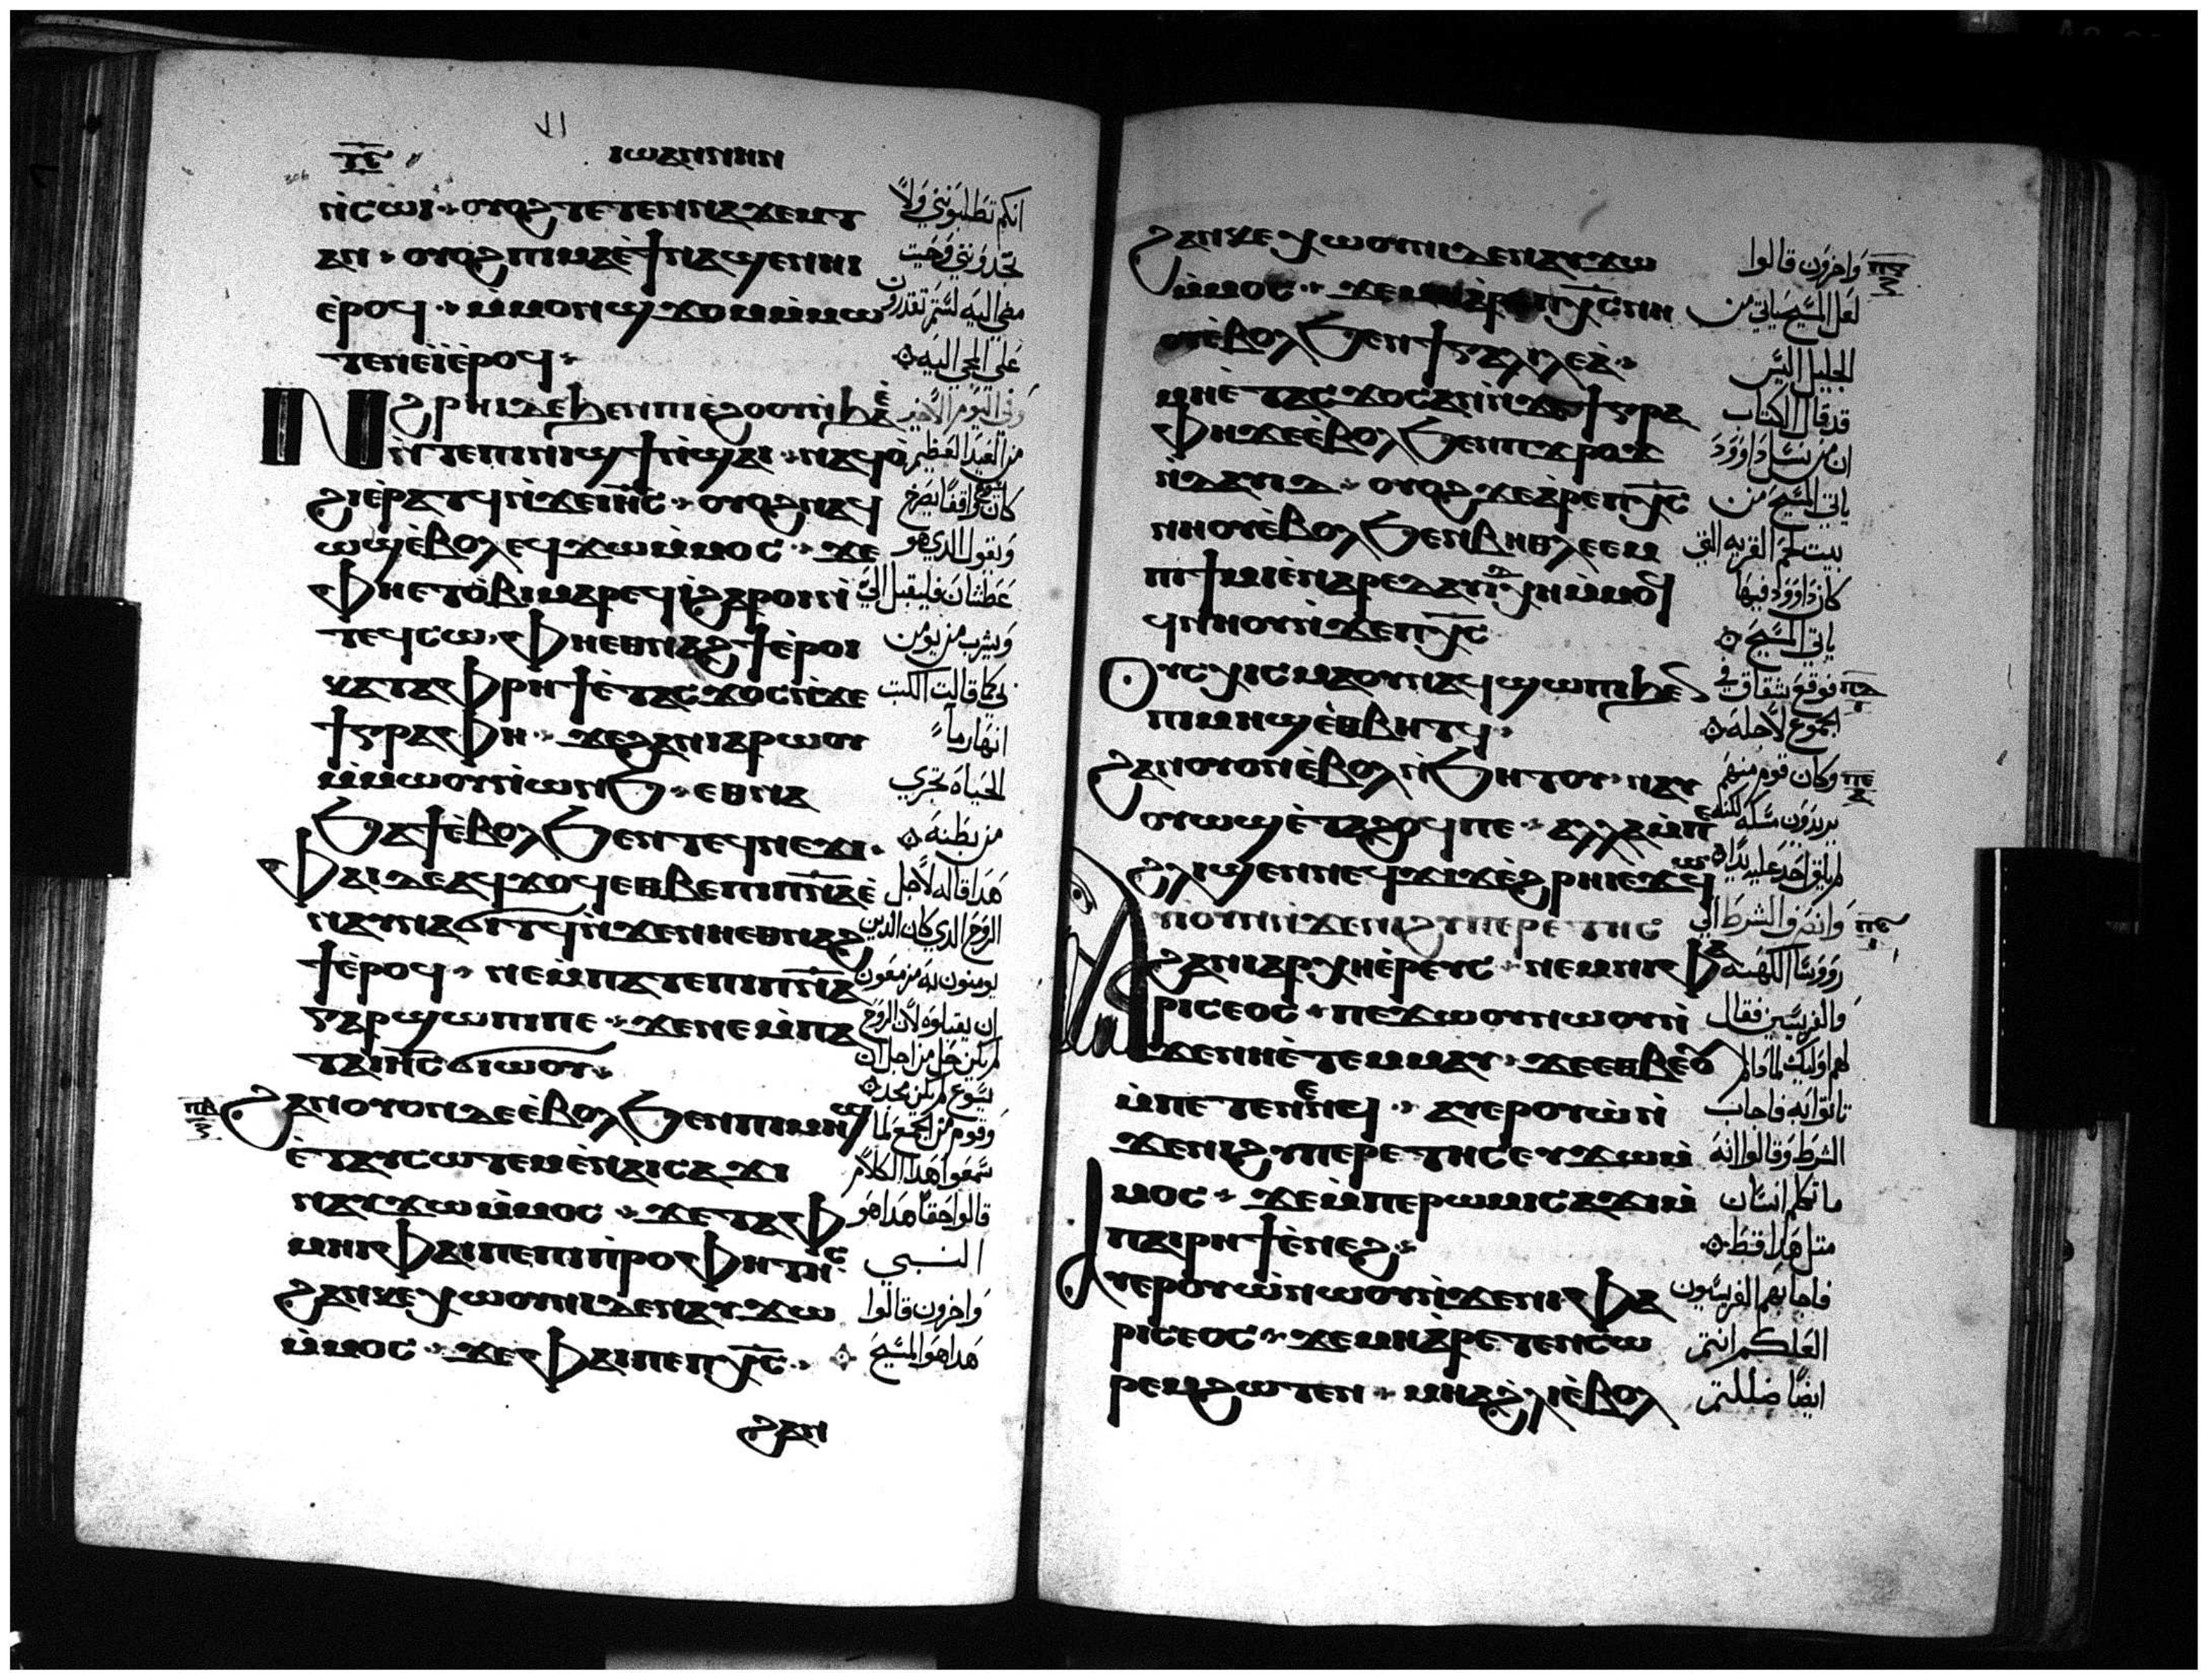 ⲧ̅ⲋ̅ ⲓⲱⲁⲛⲛⲏⲛ
ⲛ̀ⲥⲱⲓ ⲟⲩⲟϩ ⲧⲉⲧⲉⲛⲛⲁϫⲉⲙⲧ
ⲁⲛ ⲟⲩⲟϩ ⲡⲓⲙⲁ ⲉ̀ϯⲛⲁϣⲉⲛⲏⲓ
ⲉ̀ⲣⲟϥ ⲙ̀ⲙⲟⲛ ϣϫⲟⲙ ⲙ̀ⲙⲱ
ⲧⲉⲛ ⲉⲓ̀ ⲉ̀ⲣⲟϥ
Ⲛϩⲣⲏⲓ ⲇⲉ ϧⲉⲛ ⲡⲓⲉ̀ϩⲟⲟⲩ ⲛ̀ϧⲁⲉ̀
ⲛ̀ⲧⲉ ⲡⲓⲛⲓϣϯ ⲛ̀ϣⲁⲓ ⲛⲁϥⲟ̀
ϩⲓ ⲉ̀ⲣⲁⲧϥ ⲛ̀ϫⲉ ⲓⲏ̅ⲥ̅ ⲟⲩⲟϩ ⲛⲁϥ
ⲱϣ ⲉ̀ⲃⲟⲗ ⲉϥϫⲱ ⲙ̀ⲙⲟⲥ ϫⲉ
ⲫⲏ ⲉⲧⲟ̀ⲃⲓ ⲙⲁⲣⲉϥⲓ̀ ϩⲁⲣⲟⲓ ⲛ̀
ⲧⲉϥⲥⲱ ⲫⲏ ⲉⲑⲛⲁϩϯ ⲉ̀ⲣⲟⲓ
ⲕⲁⲧⲁ ⲫⲣⲏϯ ⲉ̀ⲧⲁⲥϫⲟⲥ ⲛ̀ϫⲉ
ϯⲅⲣⲁⲫⲏ ϫⲉ ϩⲁⲛⲓⲁⲣⲱⲟⲩ
ⲙ̀ⲙⲱⲟⲩ ⲛ̀ⲱⲛϧ ⲉⲑⲛⲁ
ϧⲁϯ ⲉ̀ⲃⲟⲗ ϧⲉⲛ ⲧⲉϥⲛⲉϫⲓ
ⲫⲁⲓ ⲇⲉ ⲁϥϫⲟϥ ⲉⲑⲃⲉ ⲡⲓⲡ̅ⲛ̅ⲁ̅ ⲉ̀
ⲛⲁⲩⲛⲁϭⲓⲧϥ ⲛ̀ϫⲉ ⲛⲏ ⲉⲑⲛⲁϩ
ϯ ⲉ̀ⲣⲟϥ ⲛⲉ ⲙ̀ⲡⲁⲧⲉ ⲡⲓⲡ̅ⲛ̅ⲁ̅
ⲅⲁⲣ ϣⲱⲡⲓ ⲡⲉ ϫⲉ ⲛⲉ ⲙ̀ⲡⲁ
ⲧⲉ ⲓⲏ̅ⲥ̅ ϭⲓⲱⲟⲩ
ϩⲁⲛⲟⲩⲟⲛ ⲇⲉ ⲉ̀ⲃⲟⲗ ϧⲉⲛ ⲡⲓⲙⲏϣ
ⲉ̀ⲧⲁⲩⲥⲱⲧⲉⲙ ⲉ̀ⲛⲁⲓⲥⲁϫⲓ
ⲛⲁⲩϫⲱ ⲙ̀ⲙⲟⲥ ϫⲉ ⲧⲁⲫ
ⲙⲏⲓ ⲫⲁⲓ ⲡⲉ ⲡⲓⲡ̀ⲣⲟⲫⲏⲧⲏⲥ
ϩⲁⲛⲕⲉⲭⲱⲟⲩⲛⲓ ⲇⲉ ⲛⲁⲩϫⲱ
ⲙ̀ⲙⲟⲥ ϫⲉ ⲫⲁⲓ ⲡⲉ ⲡⲭ̅ⲥ̅
ϩⲁⲛ
انكم تطلبوني ولا
تجدوني وحيث
مضي اليه لستم تقدرون
علي المجي اليه
وفي اليوم الاخير
من العيد العظيم
كان يسوع واقفا يصرخ
ويقول الذي هو
عطشان فليقبل الي
ويشرب من يومن
بي كما قالت الكتب
انهار ما
الحياة تجري
من بطنه
هذا قاله لاجل
الروح الذي كان الذين
يومنون به مزمعون
ان يقبلوه لان الروح
لم يكن حل من اجل ان
يسوع لم يكن مجد
وقوم من الجمع لما
سمعوا هذا الكلام
قالوا حقا هذا هو
النبي
واخرون قالوا
هذا هو المسيح
ϩⲁⲛⲕⲉⲭⲱⲟⲩⲛⲓ ⲇⲉ ⲛⲁⲩϫⲱ
ⲙ̀ⲙⲟⲥ ϫⲉ ⲙⲏ ⲁ̀ⲣⲉ ⲡⲭ̅ⲥ̅ ⲛⲏ
ⲟⲩ ⲉ̀ⲃⲟⲗ ϧⲉⲛ ϯⲅⲁⲗⲓⲗⲉⲁ̀
ⲙⲏ ⲉ̀ⲧⲁⲥϫⲟⲥ ⲁⲛ ⲛ̀ϫⲉ ϯⲅⲣⲁ
ⲫⲏ ϫⲉ ⲉ̀ⲃⲟⲗ ϧⲉⲛ ⲡϫⲣⲟϫ
ⲛ̀ⲇⲁⲩⲓⲇ ⲟⲩⲟϩ ϫⲉ ⲁ̀ⲣⲉ ⲡⲭ̅ⲥ̅
ⲛⲏⲟⲩ ⲉ̀ⲃⲟⲗ ϧⲉⲛ ⲃⲏⲑⲗⲉⲉⲙ
ⲡϯⲙⲓ ⲉ̀ⲛⲁⲣⲉ ⲇⲁⲩⲓⲇ ⲭⲏ ⲙ̀ⲙⲟϥ
ϥⲛⲏⲟⲩ ⲛ̀ϫⲉ ⲡⲭ̅ⲥ̅
Ⲟⲩⲥⲭⲓⲥⲙⲁ ⲟⲩⲛ ⲁϥϣⲱⲡⲓ ϧⲉⲛ
ⲡⲓⲙⲏϣ ⲉⲑⲃⲏⲧϥ
ϩⲁⲛⲟⲩⲟⲛ ⲉ̀ⲃⲟⲗ ⲛ̀ϧⲏⲧⲟⲩ ⲛⲁⲩ
ⲟⲩⲱϣ ⲉ̀ⲧⲁϩⲟϥ ⲡⲉ ⲁⲗⲗⲁ ⲙ̀ⲡⲉ
ϩⲗⲓ ϣⲉⲛ ⲛⲉϥϫⲓϫ ⲉ̀ϩⲣⲏⲓ ⲉϫⲱϥ
Ⲁⲩⲓ̀ ⲟⲩⲛ ⲛ̀ϫⲉ ⲛⲓϩⲩⲡⲉⲣⲉⲧⲏⲥ
ϩⲁ ⲛⲓⲁⲣⲭⲏⲉ̀ⲣⲉⲩⲥ ⲛⲉⲙ ⲛⲓⲫⲁ
ⲣⲓⲥⲉⲟⲥ ⲡⲉϫⲱⲟⲩ ⲛⲱⲟⲩ ⲛ̀
ϫⲉ ⲛⲏ ⲉ̀ⲧⲉⲙⲙⲁⲩ ϫⲉ ⲉⲑⲃⲉⲟⲩ
ⲙ̀ⲡⲉⲧⲉⲛⲉⲛϥ ⲁⲩⲉⲣⲟⲩⲱ̀ ⲛ̀
ϫⲉ ⲛⲓϩⲩⲡⲉⲣⲉⲧⲏⲥ ⲉⲩϫⲱ ⲙ̀
ⲙⲟⲥ ϫⲉ ⲙ̀ⲡⲉ ⲣⲱⲙⲓ ⲥⲁϫⲓ ⲙ̀
ⲡⲁⲓⲣⲏϯ ⲉ̀ⲛⲉϩ
Ⲁⲩⲉⲣⲟⲩⲱ̀ ⲛⲱⲟⲩ ⲛ̀ϫⲉ ⲛⲓⲫⲁ
ⲣⲓⲥⲉⲟⲥ ϫⲉ ⲙⲏ ⲁ̀ⲣⲉⲧⲉⲛⲥⲱ
ⲣⲉⲙ ϩⲱⲧⲉⲛ ⲙⲏ ⲁ ϩ̀ⲗⲓ ⲉ̀ⲃⲟⲗ
واخرون قالوا
لعل المسيح ياتي من
الجليل اليس
قد قال الكتاب
ان من نسل داوود
ياتي المسيح من
بيت لحم القريه التي
كان داوود فيها
ياتي المسيح
فوقع شقاق في
الجموع لاجله
وكان قوم منهم
يريدون مسكه لكنه
لم يلق احد عليه يدا
وانصرف الشرط الي
روسا الكهنه
والفريسيين فقال
لهم اوليك لماذا لم
تاتوا به فاجاب
الشرط وقالوا انه
ما تكلم انسان
مثل هذا قط
فاجابهم الفريسيون
العلكم انتم
ايضا ضللتم